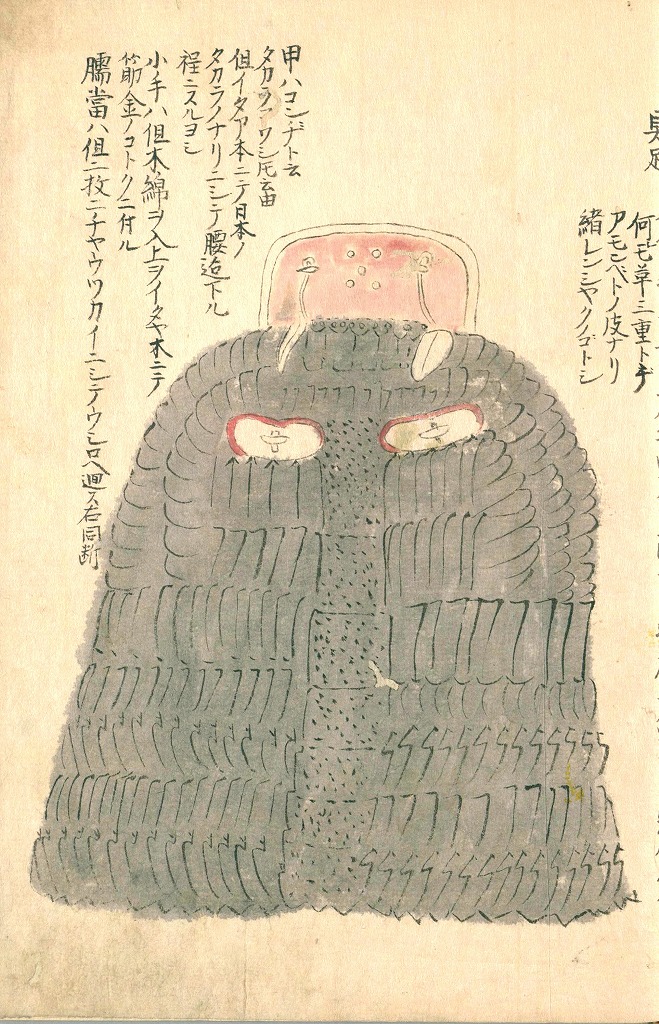 具足
何モ草三重トヂ
アモシベトノ皮ナリ
緒レンジヤクノゴトシ
甲ハコンヂト云
タカラアワシ氏云由
但イタヤ木ニテ日本ノ
タカラノナリニシテ腰迄下ル
程ニスルヨシ
小手ハ但木綿ヲ入上ヲイタヤ木ニテ
筋金ノコトクニ付ル
臑當ハ但二枚ニチヤウツカイーニシテウシロヘ廻ス右同断